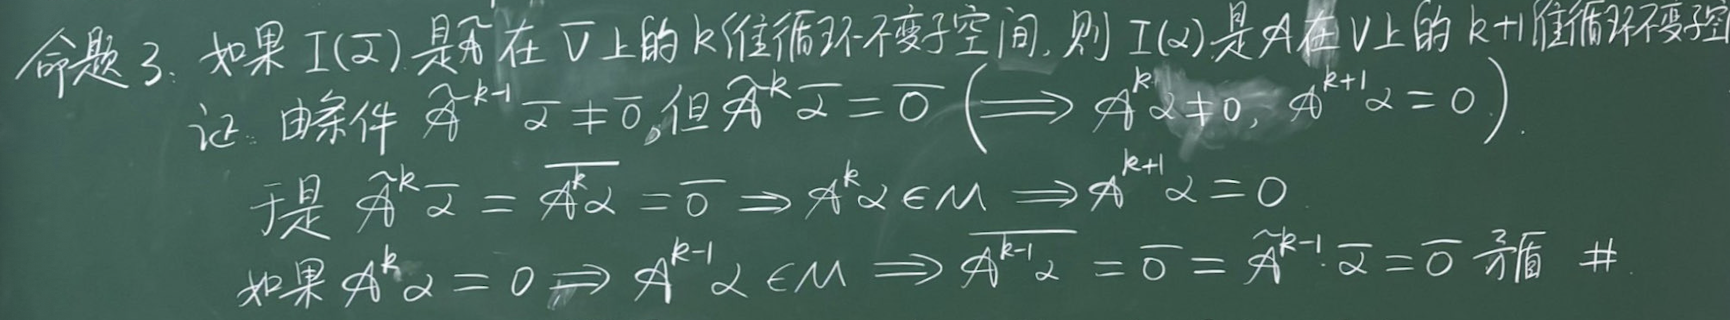 命题3. 如果 I(ᾱ) 是 Ã 在 V̄ 上的 k 维循环不变子空间, 则 I(α) 是 A 在 V 上的 k+1 维循环不变子空
证: 由条件 Ã^{k-1} ᾱ ≠ 0̄, 但 Ã^k ᾱ = 0̄ (⟹ A^k α ≠ 0, A^{k+1} α = 0).
于是 Ã^k ᾱ = \overline{A^k α} = 0̄ ⇒ A^k α ∈ M ⟹ A^{k+1} α = 0.
如果 A^k α = 0 ⟹ A^{k-1} α ∈ M ⟹ \overline{A^{k-1} α} = 0̄ = Ã^{k-1} · ᾱ = 0̄ 矛盾 #.